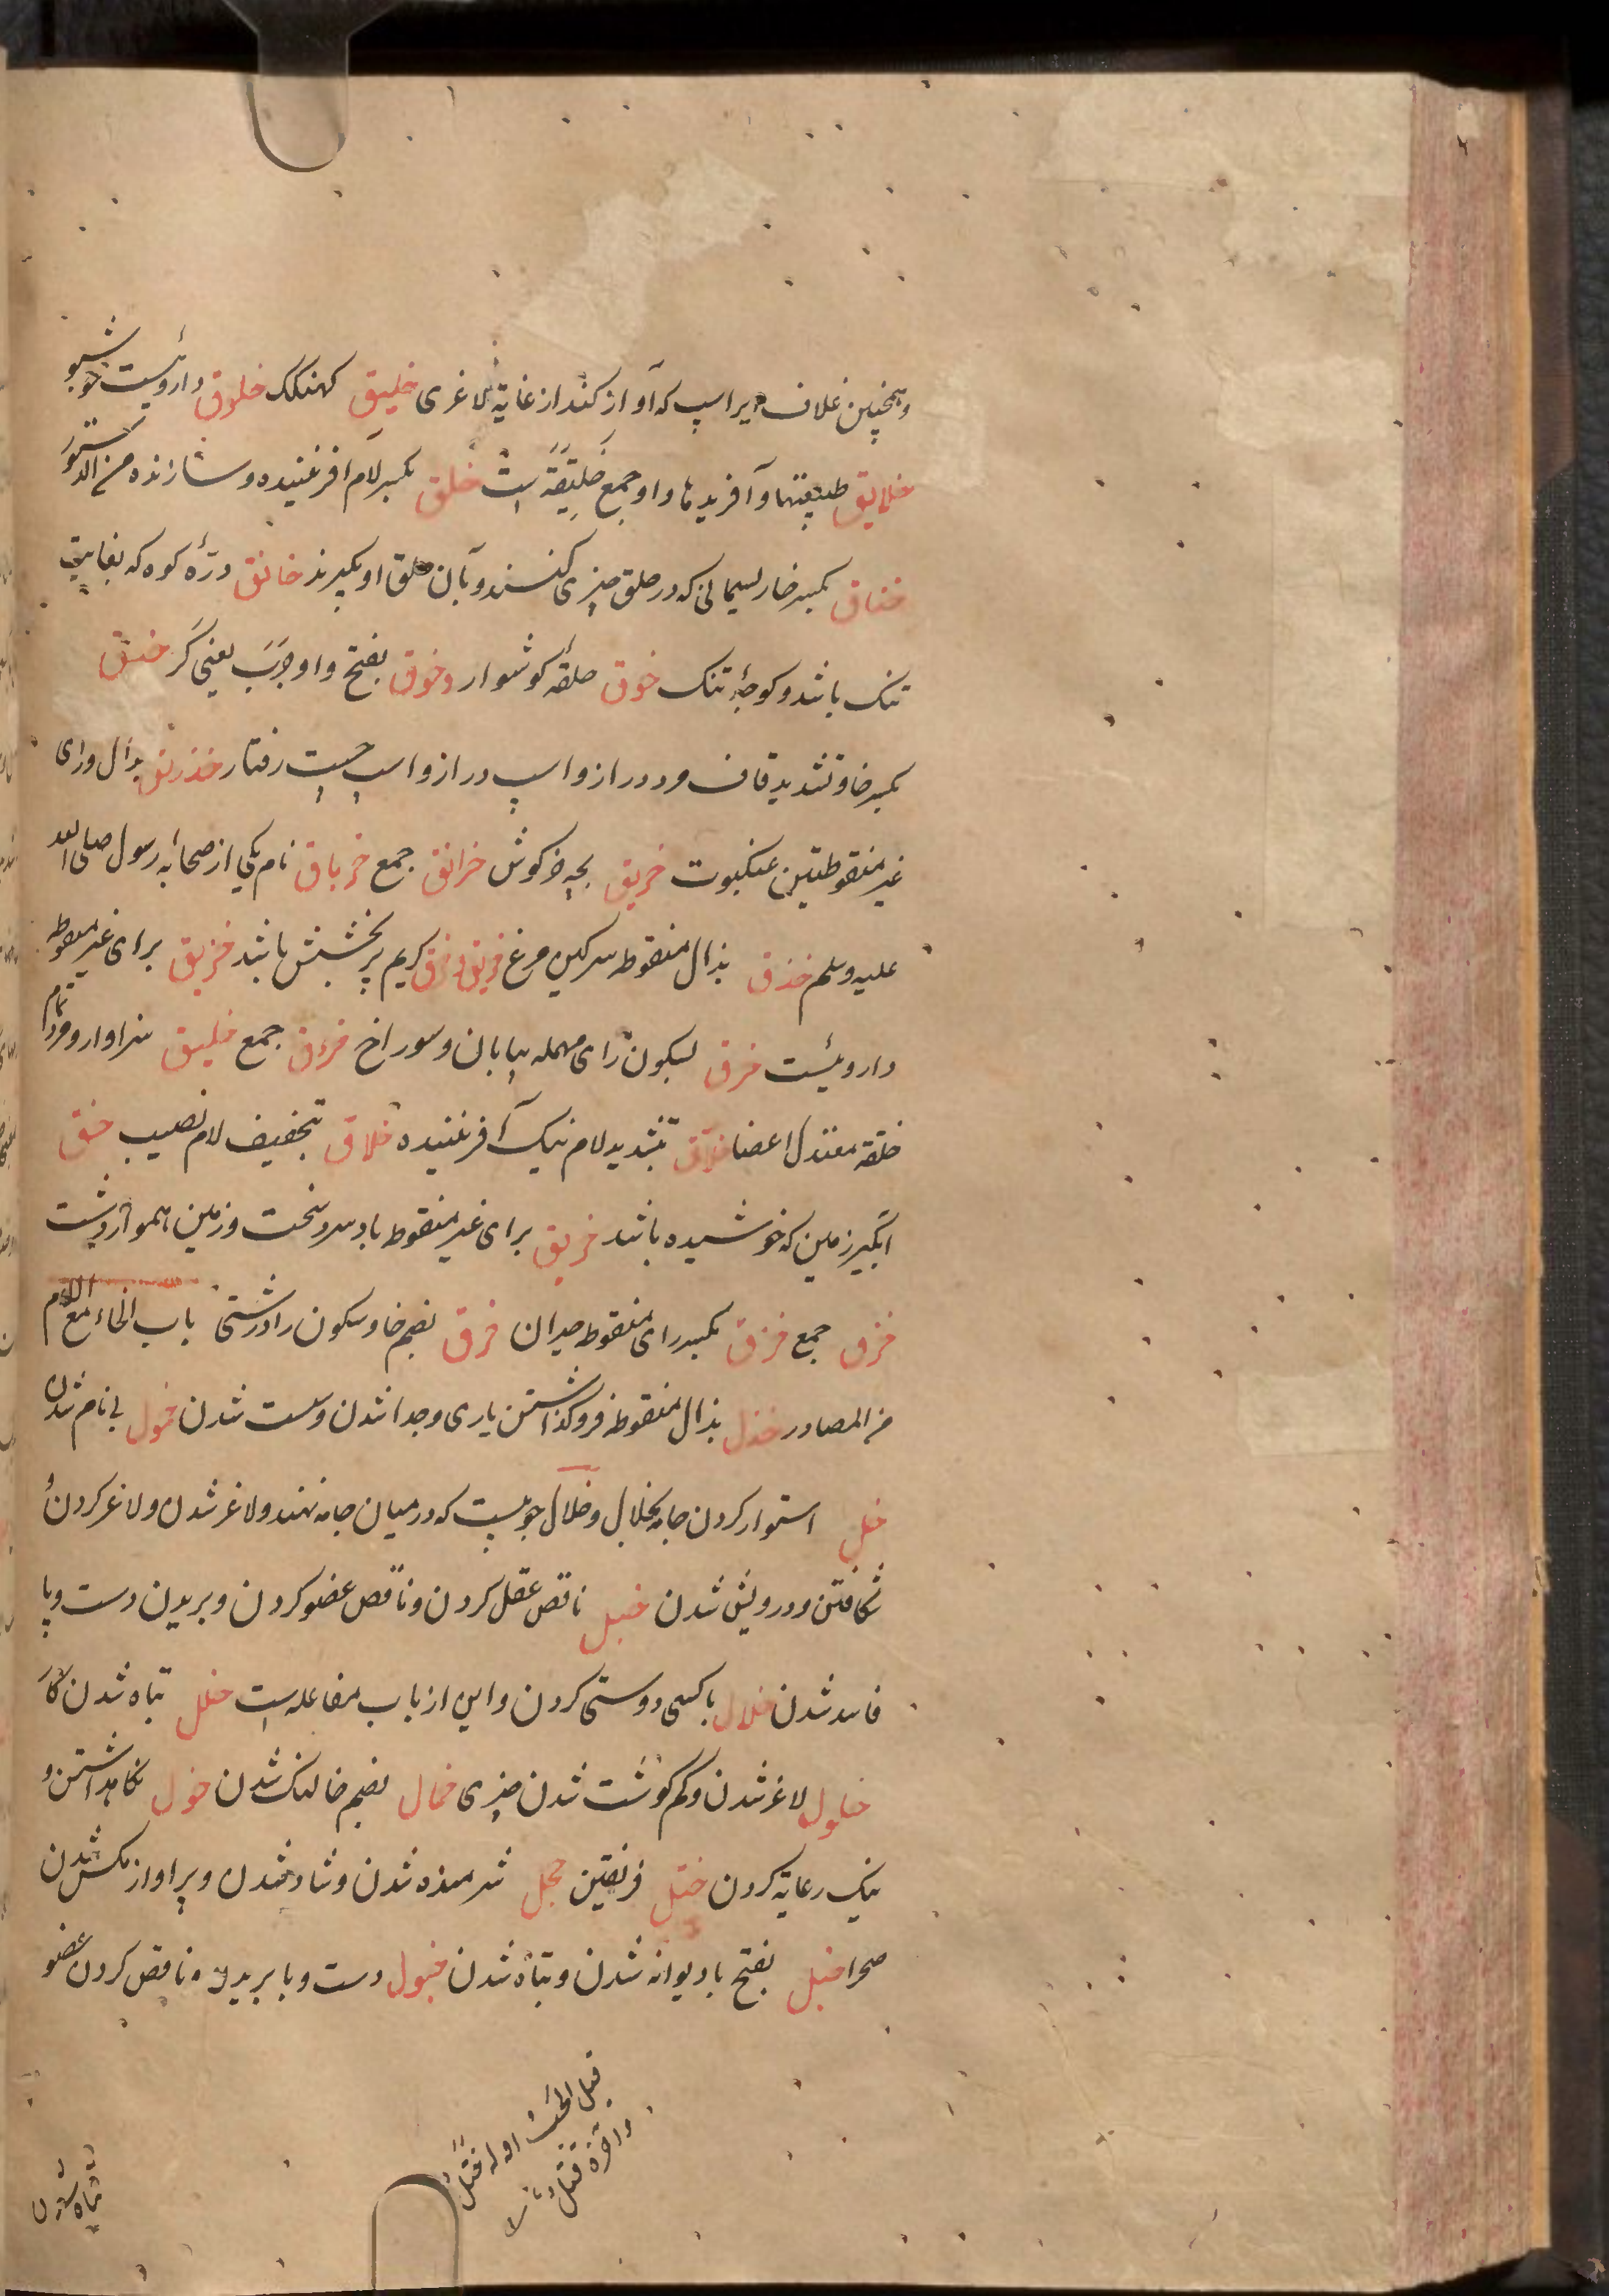 وهمچنین غلاف ایر اسپ که آواز کند از غایة لاغری خلیق کهنگک خلوق داروئیست خوشبو
خلایق طبیعتها و آفریدها و او جمع خَلِیقَة است خلق بکسر لام آفریننده و سازنده من الدستور
خناق بکسر خا ریسمانی که در حلق چیزی کنند و بآن حلق او بگیرند خانق درّه کوه که بغایت
تنک باشد و کوچهٔ تنک خوق حلقه کوشوار و خوق بفتح واو جرَب یعنی کَر خنق
بکسر خا و تشدید قاف مرد دراز و اسپ دراز و اسپ چست رفتار خذرنق بدال و رای
غیر منقوطتین عنکبوت خرنق بچه خرکوش خرانق جمع خرباق نام یکی از صحابه رسول صلی الله
علیه وسلم خذق بذال منقوطه سرکین مرغ خریق و خرق کریم پر بخشش باشد خزیق برای غیر منقوطه
داروئیست خرق بسکون رای مهمله بیابان و سوراخ خروق جمع خلیق سزاوار و مرد تمام
خلقة معتدل اعضا خلاق بتشدید لام نیک آفریننده خلاق بتخفیف لام نصیب خنق
آبکیر زمین که خوشیده باشد خریق برای غیر منقوطه باد سرد سخت و زمین هموار و دشت
خرق جمع خزق بکسر رای منقوطه حیران خرق بضم خا و سکون را درشتی باب الخاء مع اللام
من المصادر خذل بذال منقوطه فروکذاشتن یاری و جدا شدن و سست شدن خمول بی نام شدن
خل استوار کردن جامه بخلال و خلال چوبیست که در میان جامه نهند و لاغر شدن و لاغر کردن و
شکافتن و درویش شدن خبل ناقص عقل کردن و ناقص عضو کردن و بریدن دست و پا
فاسد شدن خلال با کسی دوستی کردن و این از باب مفاعله است خلل تباه شدن کار
خلول لاغر شدن و کم کوشت شدن چیزی خمال بضم خا لنک شدن خول نکاهداشتن و
نیک رعایة کردن ختل فریفتن خجل شرمنده شدن و شاد شدن و پر آواز مکس شدن
صحرا خبل بفتح با دیوانه شدن و تباه شدن خبول دست و پا بریدن و ناقص کردن عضو
اوله
واخره
تباه شدن